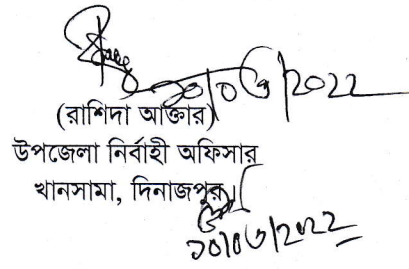 ২০/০৩/2022
(রাশিদা আক্তার)
উপজেলা নির্বাহী অফিসার
খানসামা, দিনাজপুর।
২০/০৩/2022